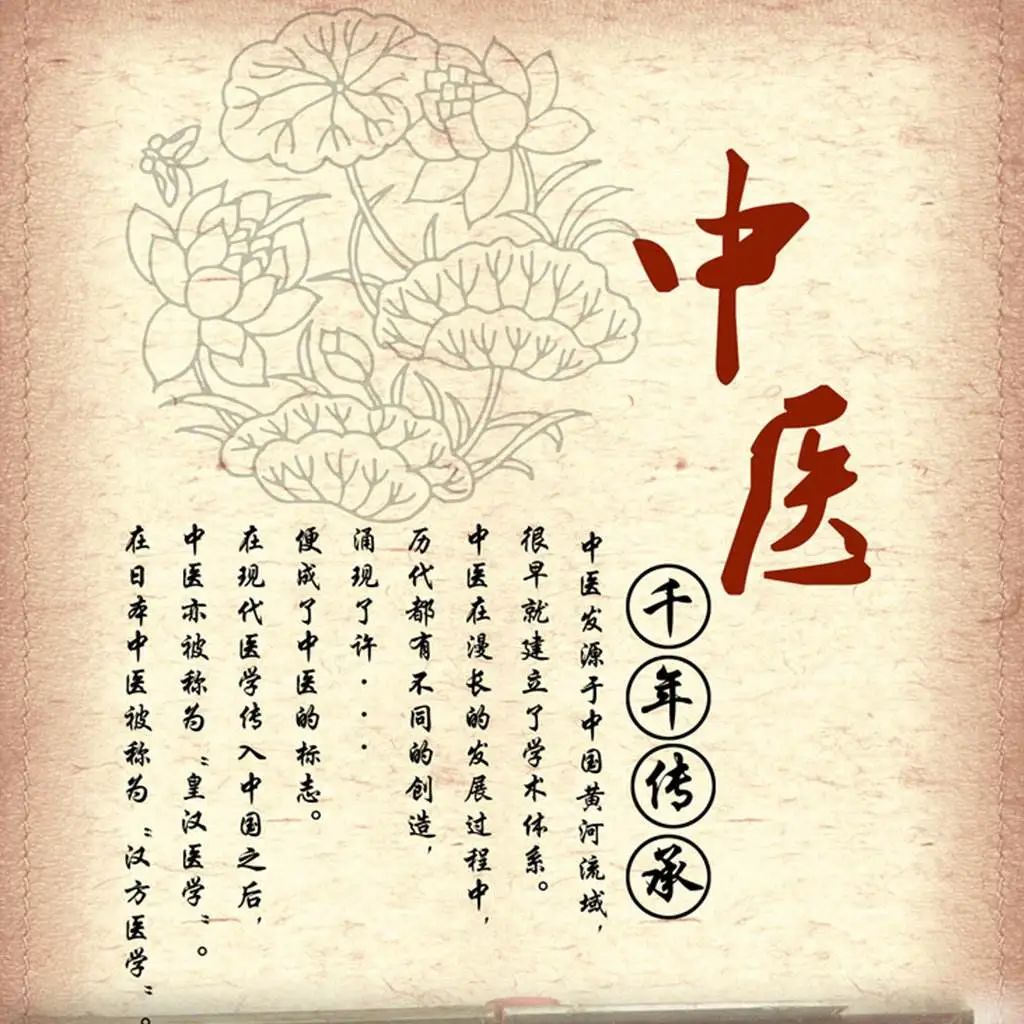 中医
千年传承
中医发源于中国黄河流域，
很早就建立了学术体系。
中医在漫长的发展过程中，
历代都有不同的创造，
涌现了许···
便成了中医的标志。
在现代医学传入中国之后，
中医亦被称为“皇汉医学”。
在日本中医被称为“汉方医学”。